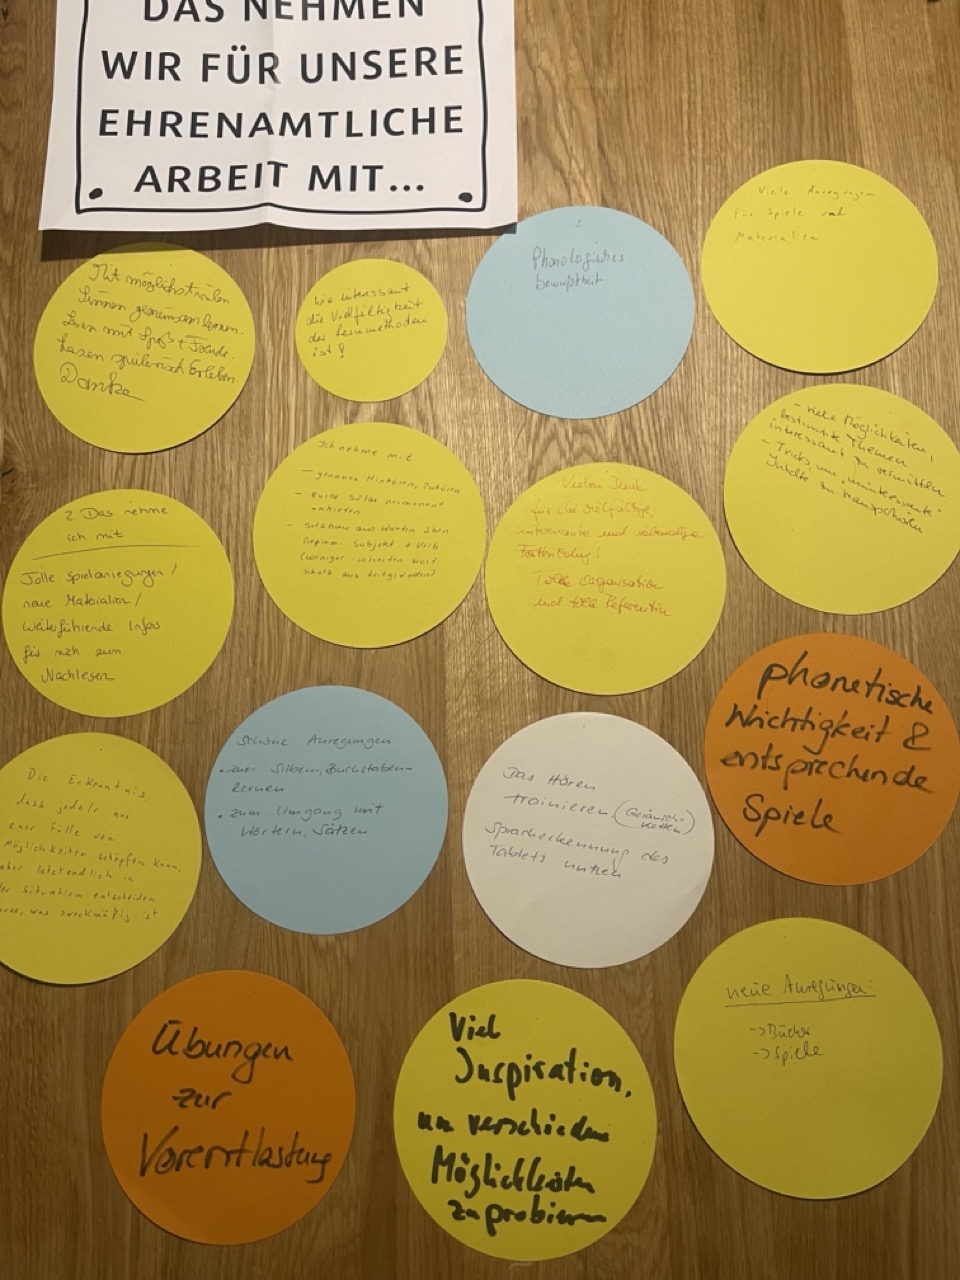 DAS NEHMEN
WIR FÜR UNSERE
EHRENAMTLICHE
ARBEIT MIT...
Viele Anregungen
für Spiele und
Materialien
Phonologisches
bewußtheit
Mit möglichst vielen
Sinnen gemeinsam lernen.
Lesen mit Spaß + Freude.
Lesen spielerisch Erleben
Danke
Wie interessant
die Vielfältigkeit
der Lesemethoden
ist!
- viele Möglichkeiten,
bestimmte Themen
interessant zu vermitteln
- Tricks um uninteressante
Inhalte zu transportieren
Ich nehme mit
- genaues Hinhören, Zuhören
- kurze Sätze permanent
anbieten
- Satzbau aus Wörtern üben
Beginn: Subjekt + Verb
(weniger
schatz aus
Vielen Dank
für die vielfältige,
interessante und lebendige
Fortbildung!
Tolle Organisation
und tolle Referentin
2 Das nehme
ich mit
Tolle Spielanregungen /
neue Materialien /
Weiterführende Infos
für mich zum
Nachlesen
phonetische
Wichtigkeit &
entsprechende
Spiele
Schöne Anregungen
• zum Silben, Buchstaben-
lernen
• zum Umgang mit
Wörtern, Sätzen
Das Hören
trainieren (Geräusch-
ketten)
Spracherkennung des
Tablets nutzen
Die Erkenntnis,
dass jede/r aus
einer Fülle von
Möglichkeiten schöpfen kann,
aber letztendlich in
der Situation entscheiden
muss, was zweckmäßig ist
neue Anregungen:
-> Bücher
-> Spiele
Übungen
zur
Vorentlastung
Viel
Inspiration,
um verschiedene
Möglichkeiten
zu probieren